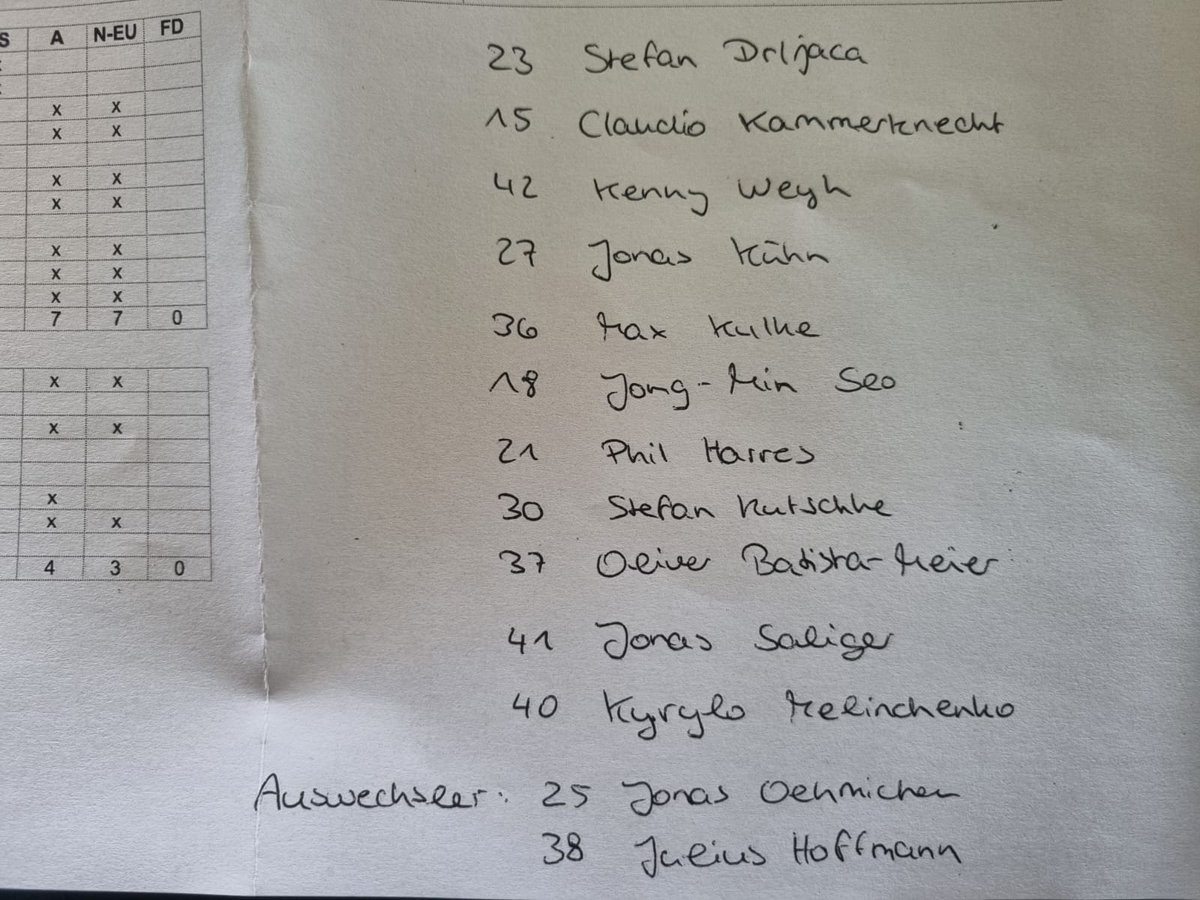 S A N-EU FD
x x
x x
x x
x x
x x
x x
x x
7 7 0
x x
x x
x
x x
4 3 0
23 Stefan Drljaca
15 Claudio Kammerknecht
42 Kenny Weyh
27 Jonas Kühn
36 Max Kulke
18 Jong-Min Seo
21 Phil Harres
30 Stefan Kutschke
37 Oliver Batista-Meier
41 Jonas Saliger
40 Kyrylo Melinchenko
Auswechsler: 25 Jonas Oehmichen
38 Julius Hoffmann